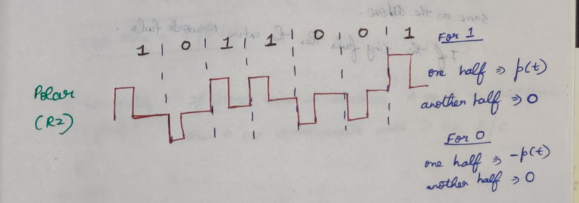 1 0 1 1 0 0 1
Polar
(RZ)
For 1
one half ⇒ p(t)
another half ⇒ 0
For 0
one half ⇒ -p(t)
another half ⇒ 0